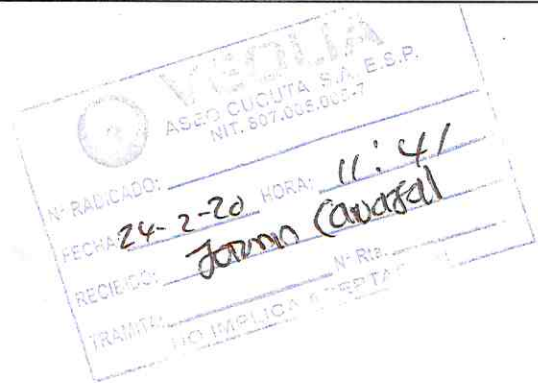 VEOLIA
ASEO CUCUTA S.A. E.S.P.
NIT. 807.005.005-7
N° RADICADO:
FECHA: 24-2-20 HORA: 11:41
RECIBIDO:
TRAMITA: N° Rta.
NO IMPLICA ACEPTACION